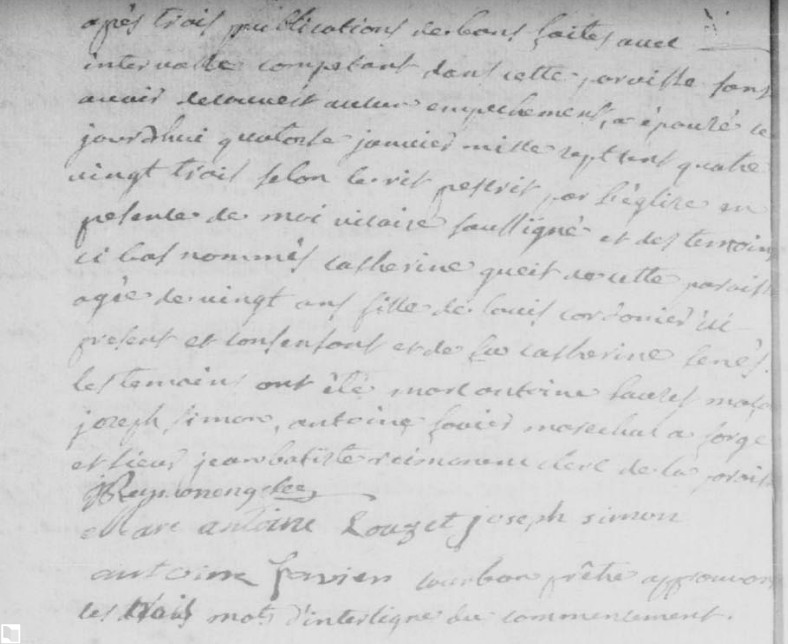 après trois publications de bans faites avec
intervalle competant dans cette paroisse sans
avoir decouvert aucun empechement, a épousé ce
jourd'hui quatorse janvier mille sept cent quatre
vingt trois selon le rit prescrit par l'église en
presence de moi vicaire soussigné et des temoins
ci bas nommés catherine queit de cette paroisse
agée de vingt ans fille de louis cordonier ici
present et consentant et de feu catherine
les temoins ont été marc antoine mason
joseph simon, antoine marechal a forge
et sieur jean batiste clerc de la paroisse
Marc antoine Louzet joseph simon
antoine prêtre approuvons
les trois mots d'interligne du commencement.